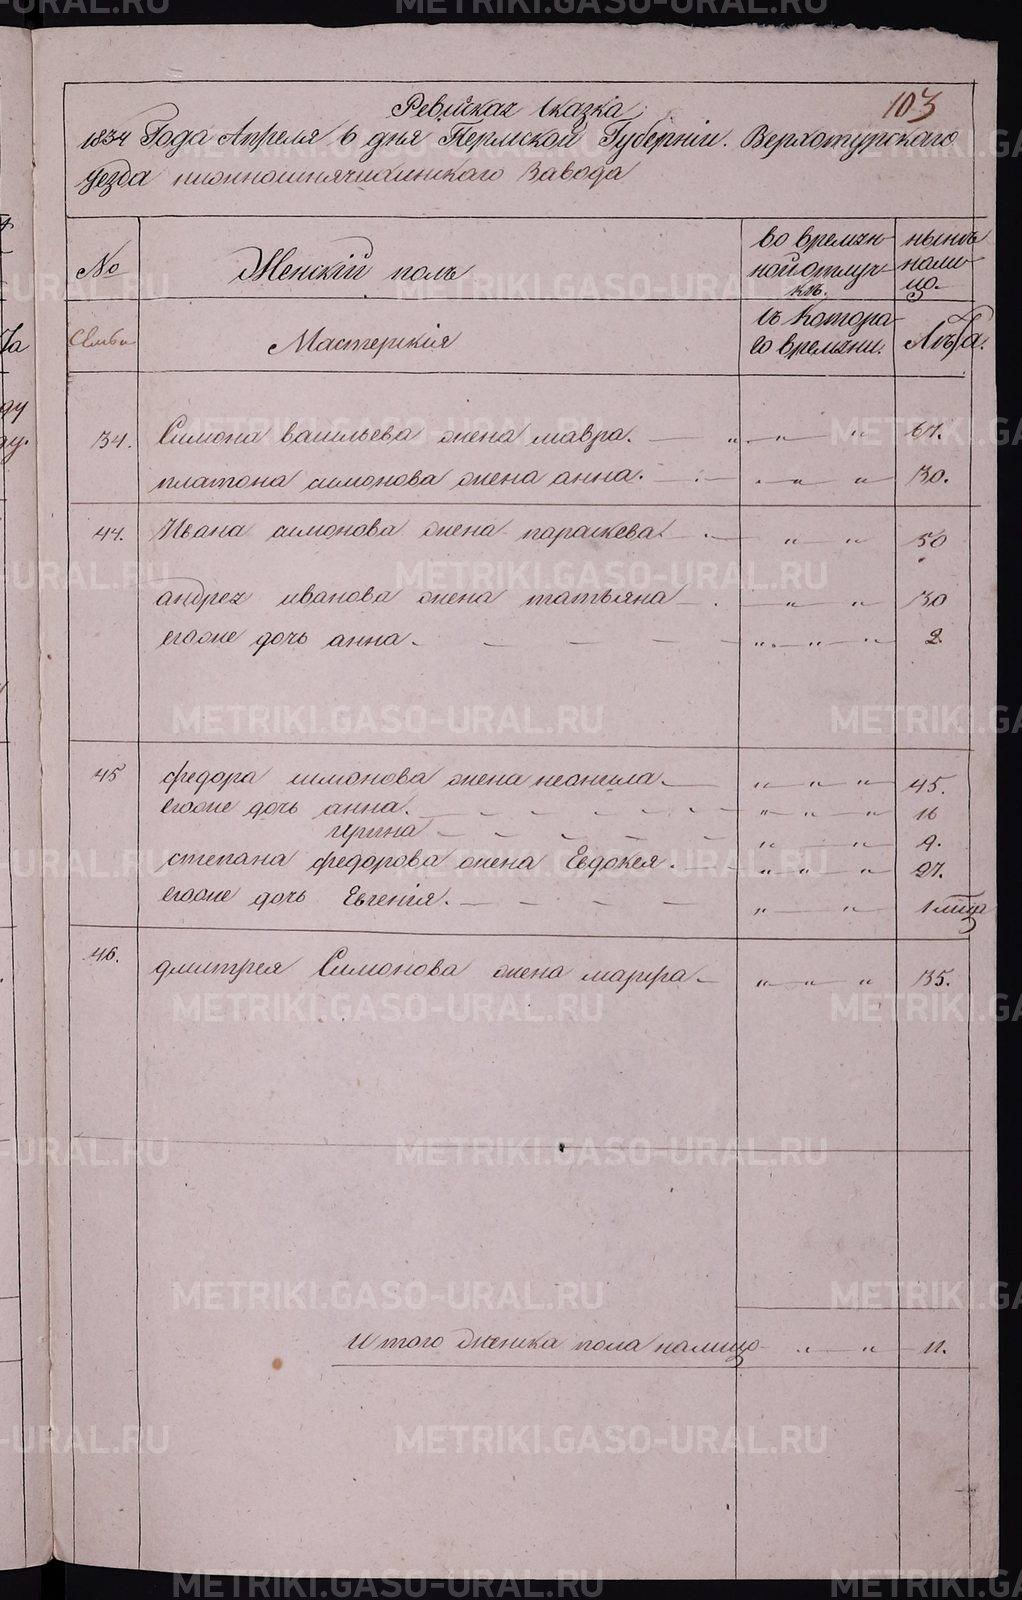 103
Ревiжская Сказка
1834 Года Апреля 6 дня Пермской Губернiи. Верхотурского
уезда Завода
№
Женскiй полъ
во времян
ной отлуч
кѣ.
нынѣ
нали
цо.
Семьи
Мастерскiя
съ котора
го времяни.
Лѣта.
34. Симона васильева жена мавра. 67.
платона симонова жена анна. 30.
44. Ивана симонова жена параскева. 50
андрея иванова жена татьяна 30
егоже дочь анна 2
45 федора симонова жена неонила 45.
егоже дочь анна. 16
ирина 9.
степана федорова жена Евдокея. 27.
егоже дочь Евгенiя. 1 мѣся
46. дмитрея Симонова жена марфа 35.
Итого женска пола налицо 11.
METRIKI.GASO-URAL.RU